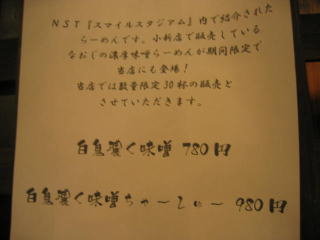 NST『スマイルスタジアム』内で紹介された
らーめんです。小新店で販売している
なおじの濃厚味噌らーめんが期間限定で
当店にも登場！
当店では数量限定30杯の販売と
させていただきます。
白鳥濃く味噌 780円
白鳥濃く味噌ちゃ〜しゅ〜 980円